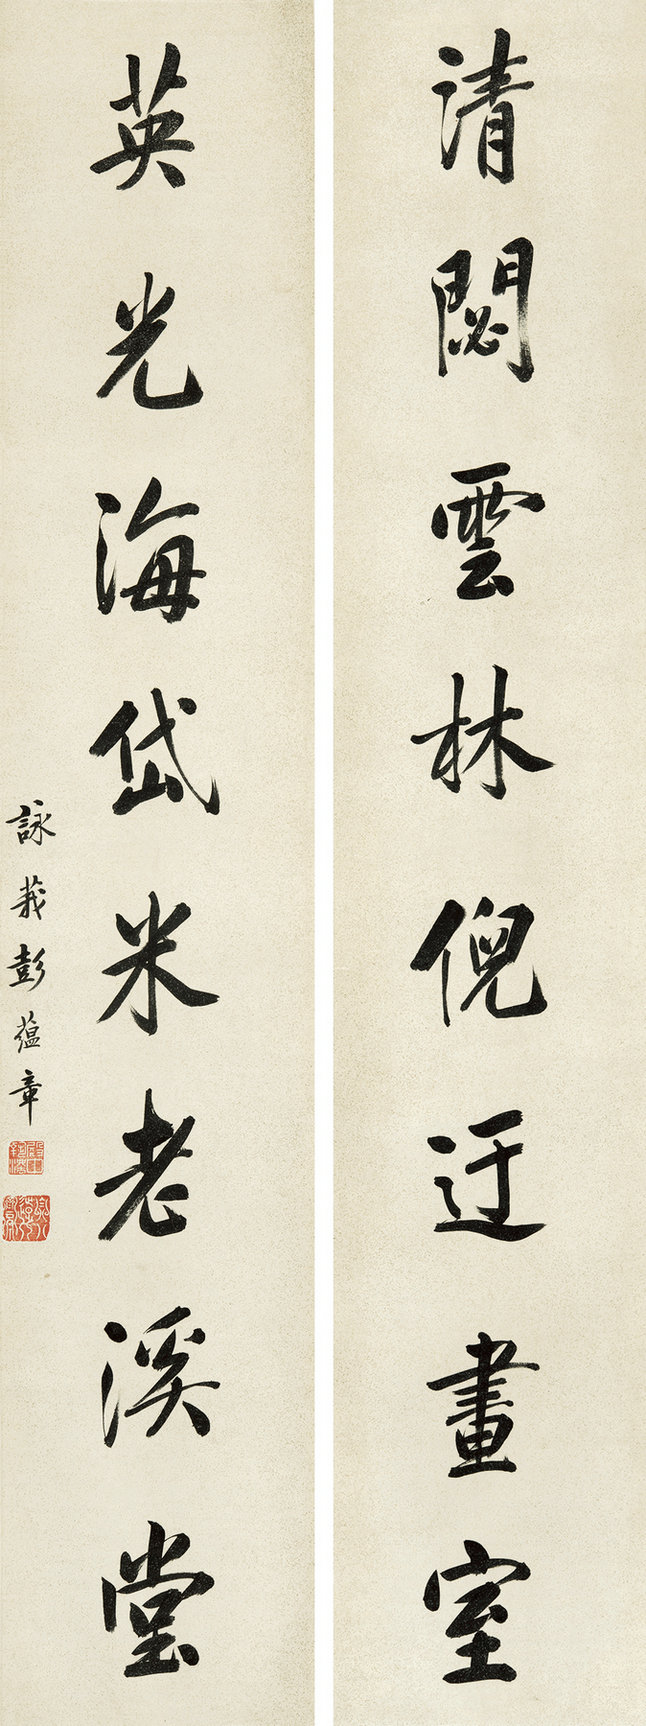 清閟雲林倪迂畫室
英光海岱米老溪堂
詠莪彭蘊章